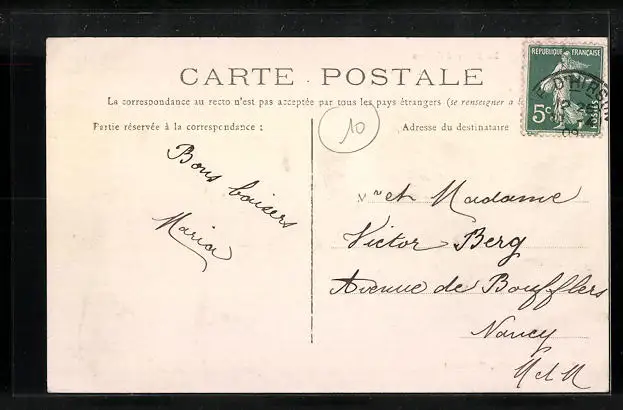 CARTE POSTALE
La correspondance au recto n'est pas acceptée par tous les pays étrangers (se renseigner a
Partie réservée à la correspondance :
Adresse du destinataire
10
Bons baisers
Maria
Mr et Madame
Victor Berg
Avenue de Boufflers
Nancy
M et M
REPUBLIQUE FRANÇAISE
5c
POSTES
D'HIRSON
09